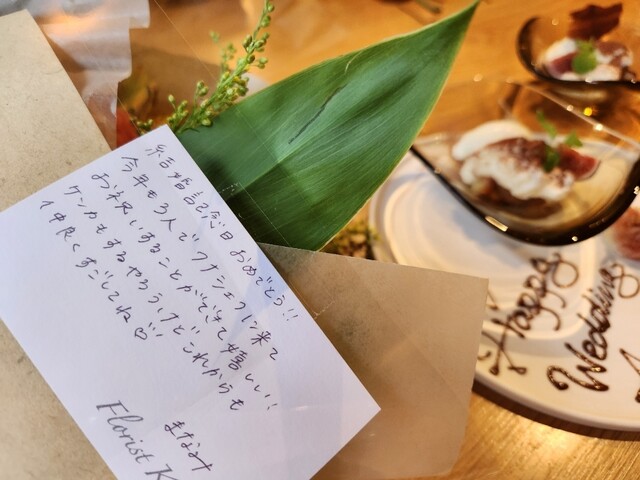 結婚記念日 おめでとう!!
今年も3人でワナシェフに来て
お祝いすることができて嬉しい!!
ケンカもするやろうけどこれからも
仲良くすごしてね♡
まなみ
Florist K
Happy
Wedding